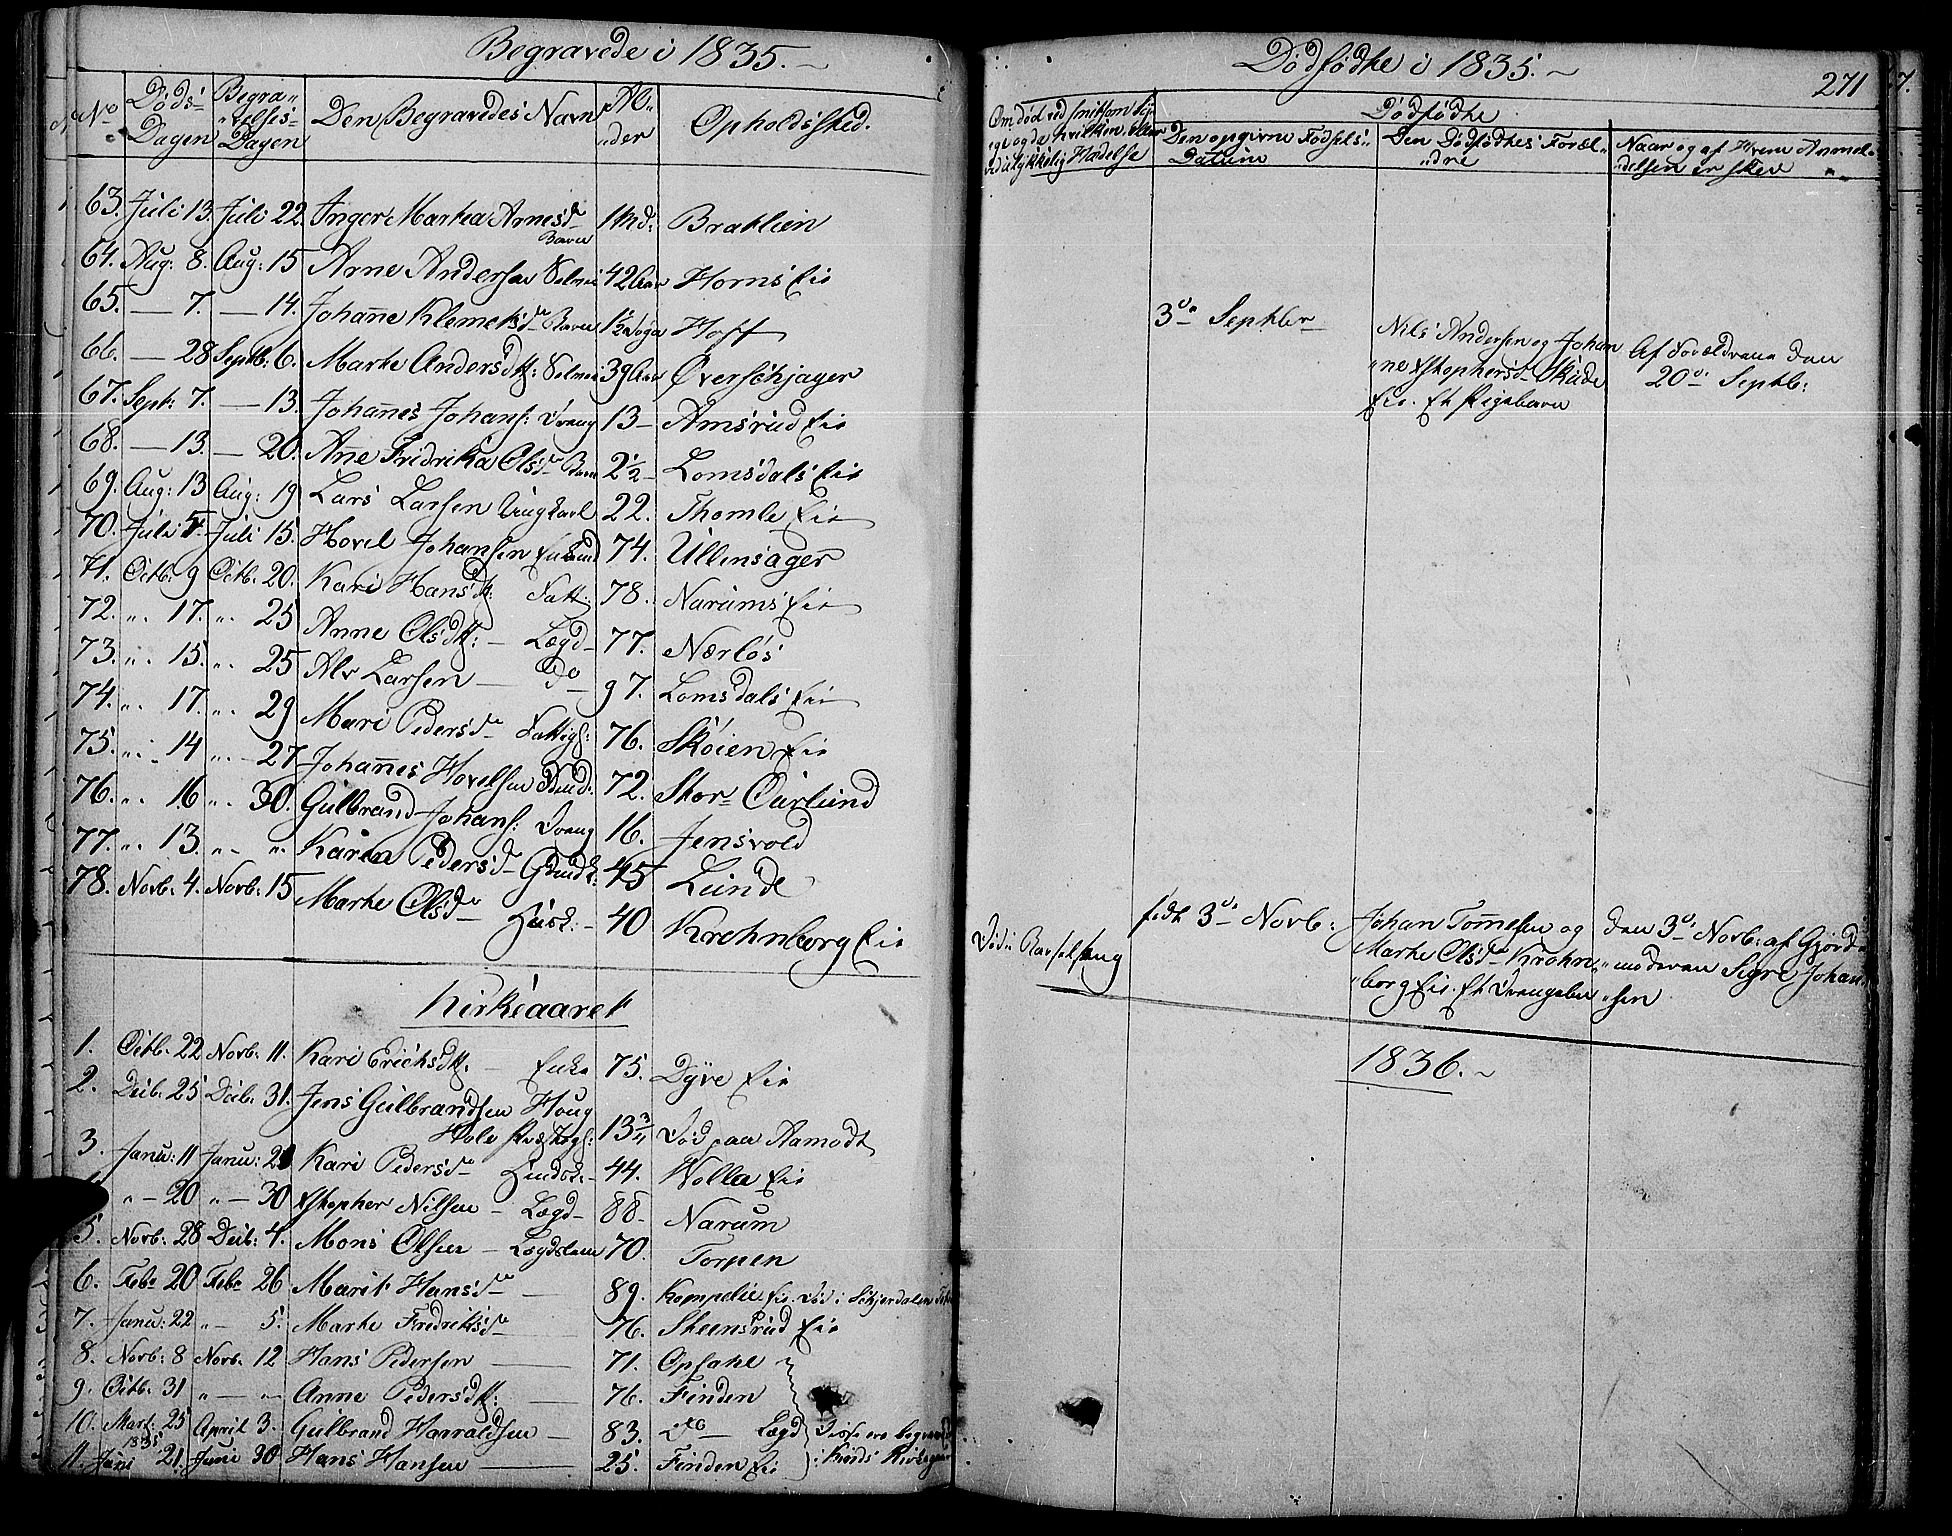 Begravede i 1835.
No Døds- Dagen Begravelses- Dagen Den Begravedes Navn Alder Opholdssted.
63. Juli 13. Juli 22. Inger Marthea Arnesd. Barn 1 Md: Brathlien
64. Aug: 8. Aug: 15 Arne Andersen 42 Aar Horns Eie
65. — 7. — 14. Johanne Klemetsd. Barn 1½ Hoff
66. — 28 Septb. 6. Marthe Andersdtt: 39 Aar Øverschjager
67. Sept: 7. — 13. Johannes Johans: Dreng 13 — Amsrud Eie
68. — 13. — 20. Anne Fridrika Olsd. Barn 2½ — Lomsdals Eie
69. Aug: 13 Aug: 19 Lars Larsen Ungkarl 22. Thomle Eie
70. Juli 5. Juli 15. Hovel Johansen 74. Ullensager
71. Octb. 9 Octb. 20. Kari Hansdtt: Fatt: 78. Narums Eie
72. „ 17. „ 25 Anne Olsdtt: — Lægd — 77. Nærløs
73. „ 15. „ 25 Alv Larsen — Do 97. Lomsdals Eie
74. „ 17. „ 29 Mari Pedersd. Fattigl: 76. Skøien Eie
75. „ 14 „ 27 Johannes Hovelsen 72. Stor- Ourlund
76. „ 16 „ 30. Gulbrand Johans: Dreng 16. Jensvold
77. „ 13. „ „ Karen Pedersd. 45 Lunde
78. Norb. 4. Norb: 15 Marthe Olsd. Husk: — 40 Krohnborg Eie
Kirkeaaret
1. Octb: 22 Norb: 11. Kari Erichsdtt. — Enke 75. Dyve Eie
2. Decb. 25 Decb. 31. Jens Gulbrandsen Houg
Hole 13¾ Død paa Aamodt
3. Janu: 11 Janu: 21 Kari Pedersd. — 44. Wolla Eie
„ — 20 „ — 30 Christopher Nilsen — Lægd — 88 — Narum
5. Norb: 28 Decb: 4. Mons Olsen — Lægdslem 70. Torpen
6. Feb. 20 Feb. 26 Marit Hansd. — 89. Kompelie Eie. Død i
7. Janu: 22 „ — 5. Marthe Fredriksd. 76. Steensrud Eie
8. Norb: 8 Norb. 12 Hans Pedersen — 71. Opsahl
9. Octb. 31 „ — „ Anne Pedersdtt: — 76. Finden
10. Mart. 25 April 3. Gulbrand Harraldsen — 83. Do — Lægd Disse ere begravede
11. Juni 1835 21. Juni 30 Hans Hansen — 25. Finden Eie i Kinds Kirkegaard
Dødfødte i 1835.
271
Dødfødte
Den opgivne Fødsels- Datum
Den Dødfødtes Foræl- dre
Naar og af Hvem Anmel- delsen er skeed
3die Septbr
Nils Andersen og Johan
ne Christophersd. Skude
Eie. Et Pigebarn
Af Forældrene den
20de Septb:
Død i Barselseng
født 3die Norb:
Johan Tomesen og
Marthe Olsd. Krohn
borg Eie. Et Drengebn
den 3die Norb: af Gjord
moderen Sigri Johan
sen
1836.